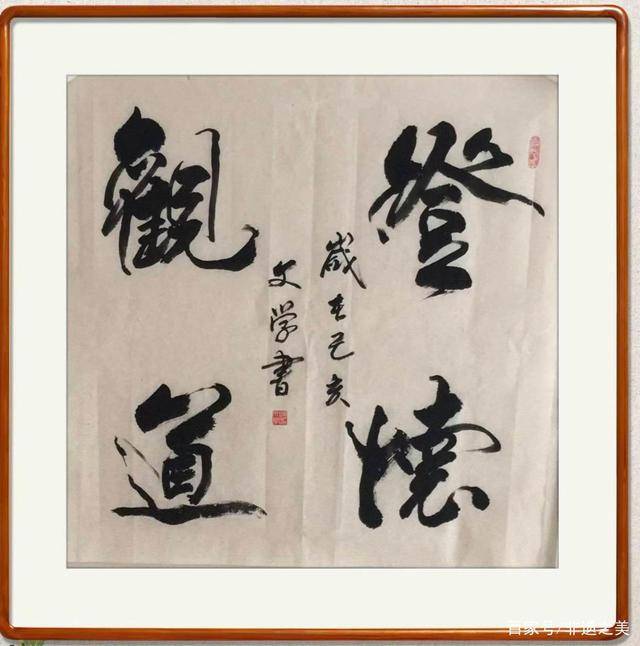 澄懷
觀道
歲在己亥
文学書
百家号/非遗之美